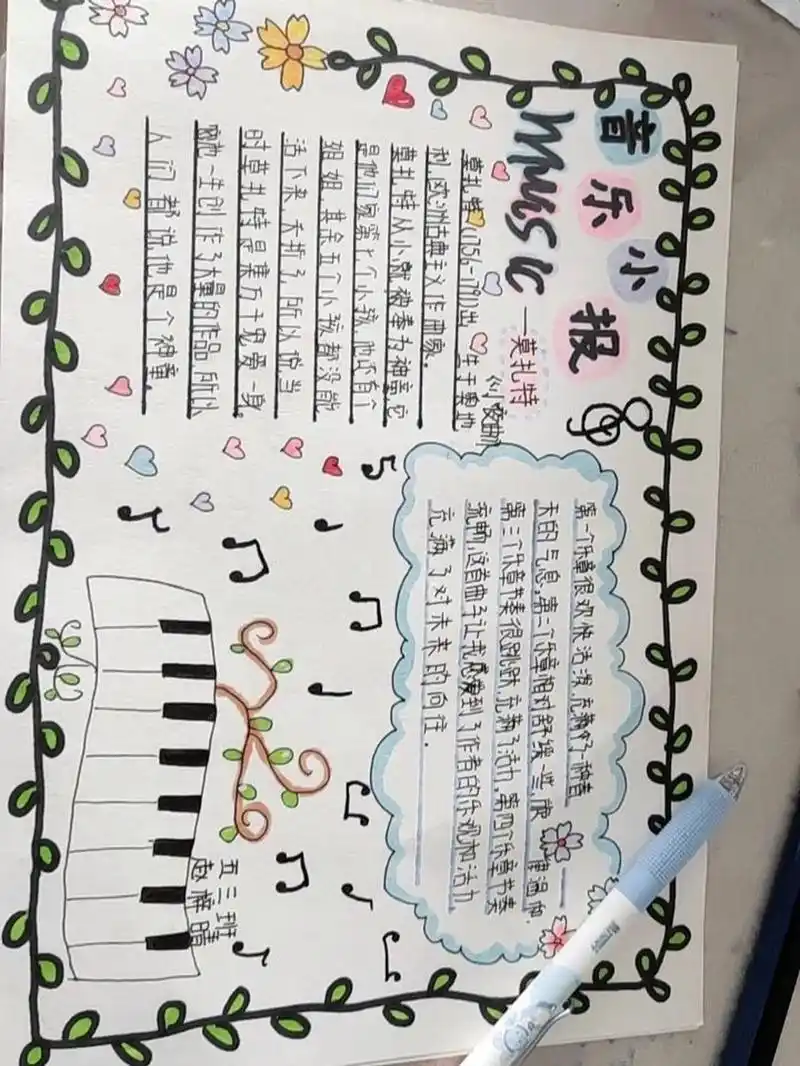 音乐小报
Music
—莫扎特
《小夜曲》
莫扎特(1756-1791)出生于奥地
利,欧洲古典主义作曲家。
莫扎特从小就被奉为神童,它
是他们家第七个小孩,他还有个
姐姐,其余五个小孩都没能
活下来,夭折了,所以说当
时莫扎特是集万千宠爱一身。
而他一生创作了大量的作品,所以
人们都说他是个神童。
第一个乐章很欢快活泼,充满了一种春
天的气息,第二个乐章相对舒缓一些,旋律温和,
第三个乐章节奏很跳跃,充满了活力,第四个乐章节奏
流畅,这首曲子让我感受到了作者的乐观和活力
充满了对未来的向往。
五三班
赵梓晴